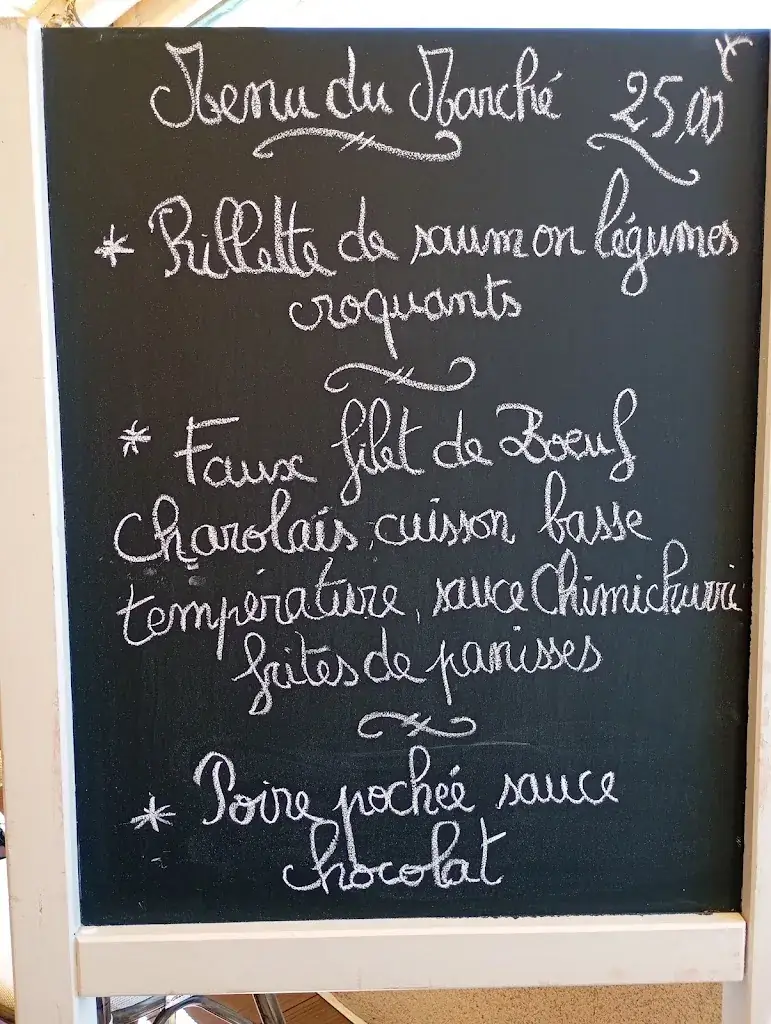 Menu du Marché 25,00
* Rillette de saumon légumes
croquants
* Faux filet de Boeuf
Charolais, cuisson basse
température, sauce Chimichurri
frites de panisses
* Poire pochée sauce
chocolat